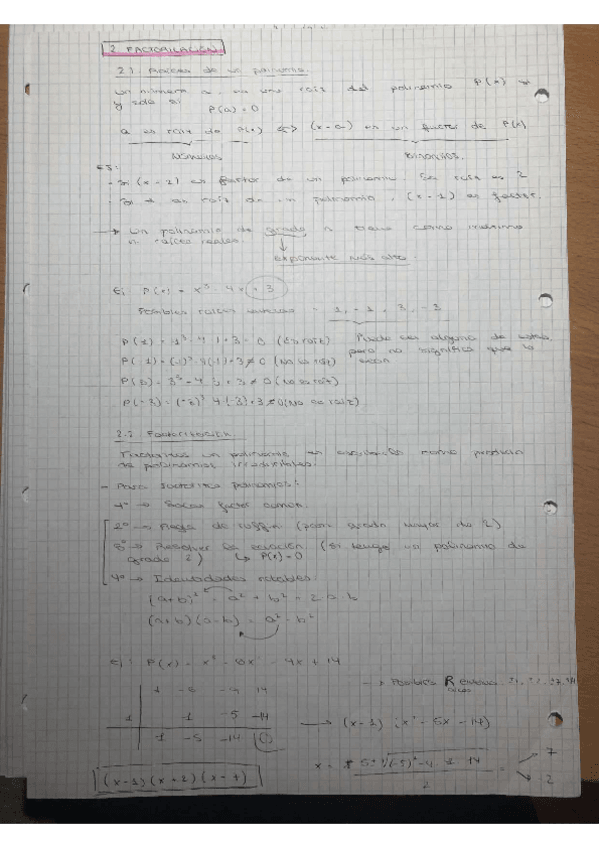 2. FACTORIZACIÓN
2.1 Raíces de un polinomio.
Un número a es una raíz del polinomio P(x) si
y solo si P(a) = 0
a es raíz de P(x) <=> (x-a) es un factor de P(x)
Números Binomios.
Ej:
· Si (x-2) es factor de un polinomio. Su raíz es 2
· Si 1 es raíz de un polinomio, (x-1) es factor.
→ Un polinomio de grado n tiene como máximo
n raíces reales.
exponente más alto.
Ej P(x) = x³ - 4x + 3
Posibles raíces enteras = 1, -1, 3, -3
P(1) = 1³ - 4·1 + 3 = 0 (Es raíz) Puede ser alguno de estos,
pero no significa que lo
P(-1) = (-1)³ - 4(-1) + 3 ≠ 0 (No es raíz) sean
P(3) = 3³ - 4·3 + 3 ≠ 0 (No es raíz)
P(-3) = (-3)³ - 4(-3) + 3 ≠ 0 (No es raíz)
2.2 Factorización.
Factorizar un polinomio es escribirlo como producto
de polinomios irreducibles.
- Para factorizar polinomios:
1º → Sacar factor común.
2º → Regla de Ruffini (para grado mayor de 2)
3º → Resolver la ecuación (si tengo un polinomio de
grado 2) ↳ P(x) = 0
4º → Identidades notables
(a+b)² = a² + b² + 2·a·b
(a+b)(a-b) = a² - b²
ej: P(x) = x³ - 6x² - 9x + 14
→ Posibles R enteras
raíces
1 -6 -9 14
1 1 -5 -14
1 -5 -14 0
→ (x-1) · (x² - 5x - 14)
(x-1)(x+2)(x-7)
7
2